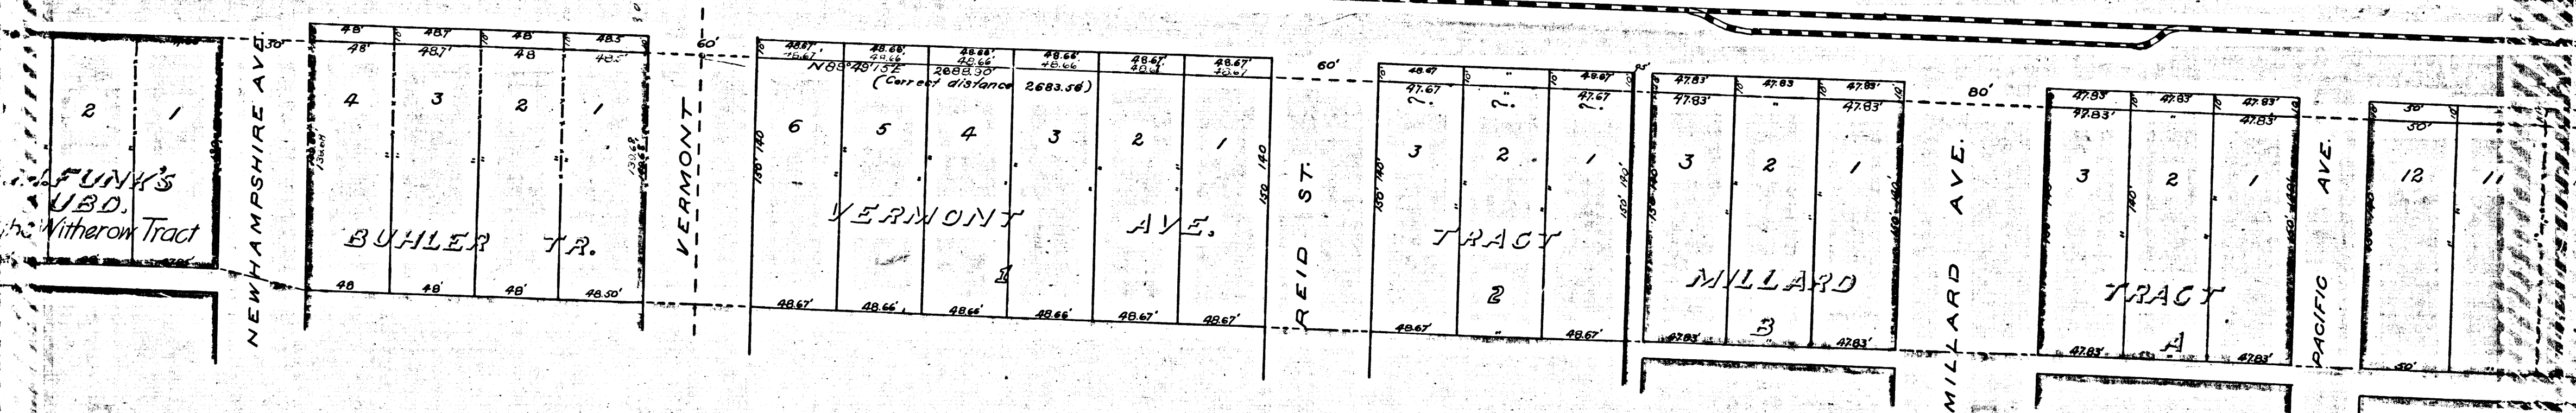 2 1
FUNK'S
UBD.
Witherow Tract
NEWHAMPSHIRE AVE.
30'
48' 48.7' 48' 48.5'
48' 48.7' 48
4 3 2 1
BUHLER TR.
48 48' 48' 48.50'
VERMONT
60'
48.67' 48.66' 48.66' 48.66' 48.67' 48.67'
48.67 48.66 48.66' 48.66 48.67 48.67
N89°49'15"E 2688.30'
(Correct distance 2683.50)
6 5 4 3 2 1
150' 140 150 140
VERMONT AVE.
1
48.67' 48.66' 48.66' 48.66' 48.67' 48.67'
REID ST.
60'
48.67 " 48.67'
47.67 47.67
? ? ?
3 2 1
150' 140' 150' 140'
TRACT
2
48.67' " 48.67'
47.83' 47.83 47.83'
47.83' " 47.83'
3 2 1
MILLARD
B
47.83' 47.83'
MILLARD AVE.
80'
47.83' 47.83' 47.83'
47.83' " 47.83'
3 2 1
140'
TRACT
A
47.83' 47.83'
PACIFIC AVE.
50'
50'
12 11
50'